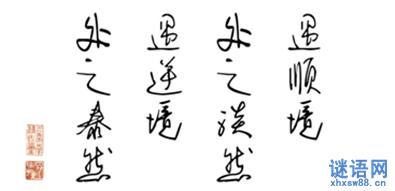 遇顺境
处之淡然
遇逆境
处之泰然
谜语网
xhxsw88.cn